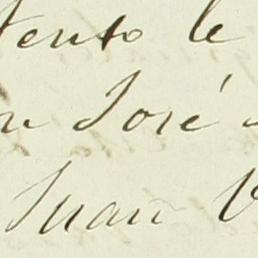 tento le
n José
Juan V